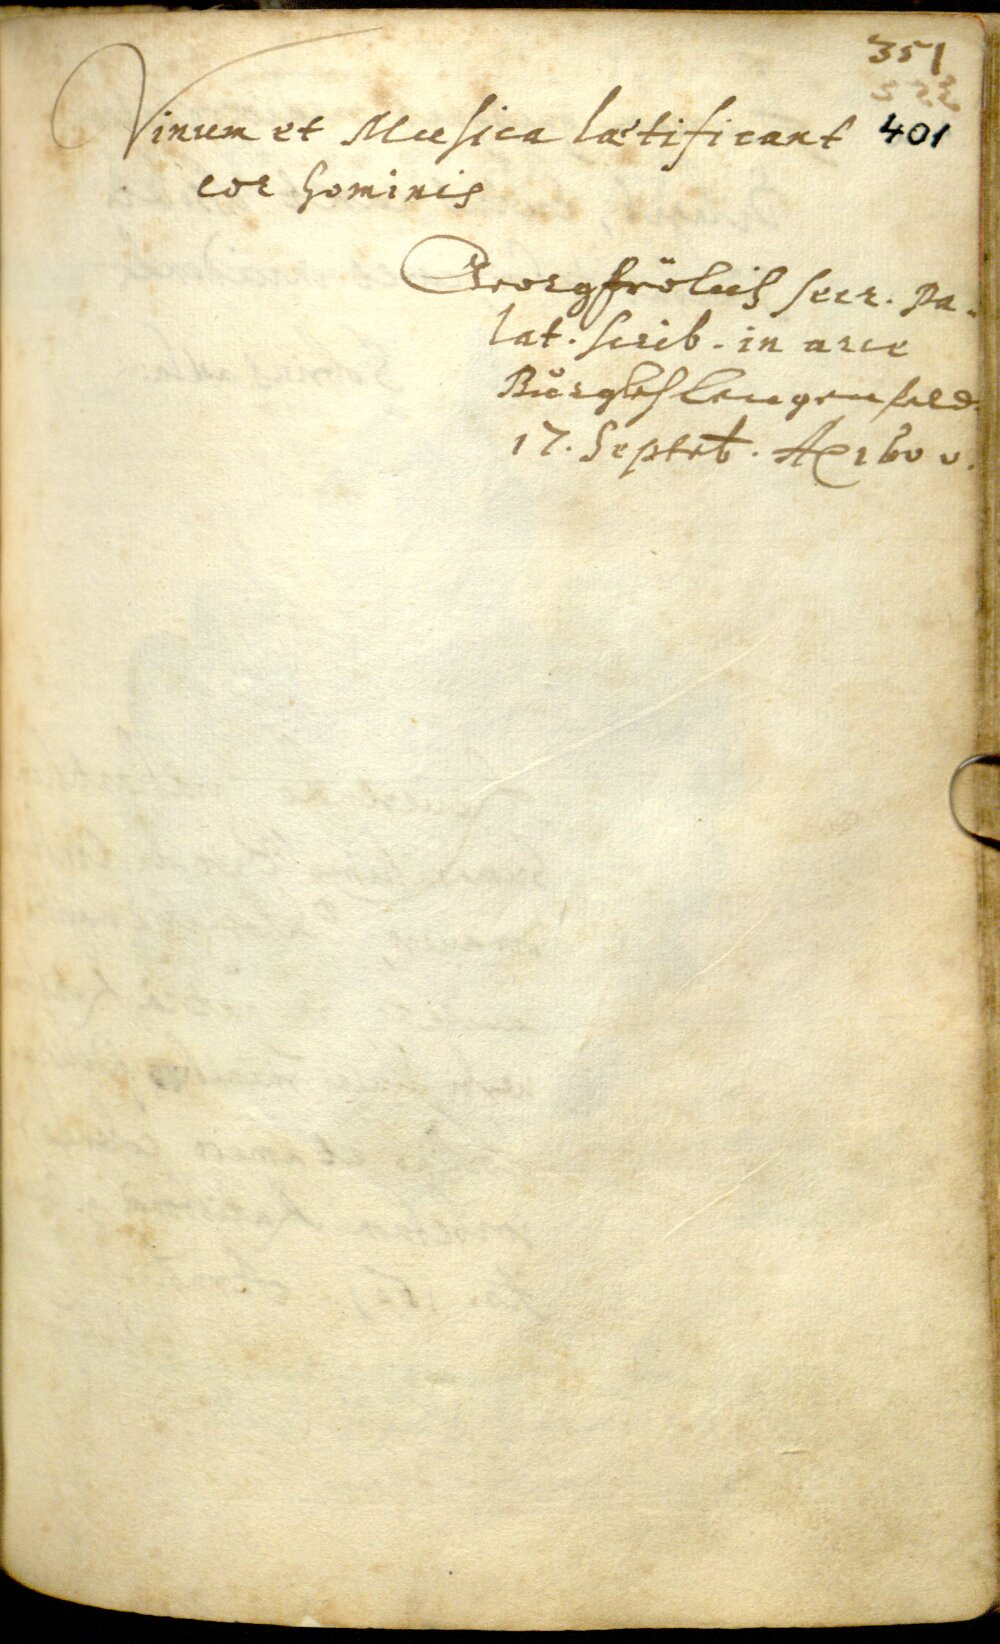 351
322
401
Vinum et Musica lætificant
cor hominis
Georg frölich secr. Pa-
lat. scrib. in arce
Bürglehslengenfeld
17. Septeb. Ao 1600.